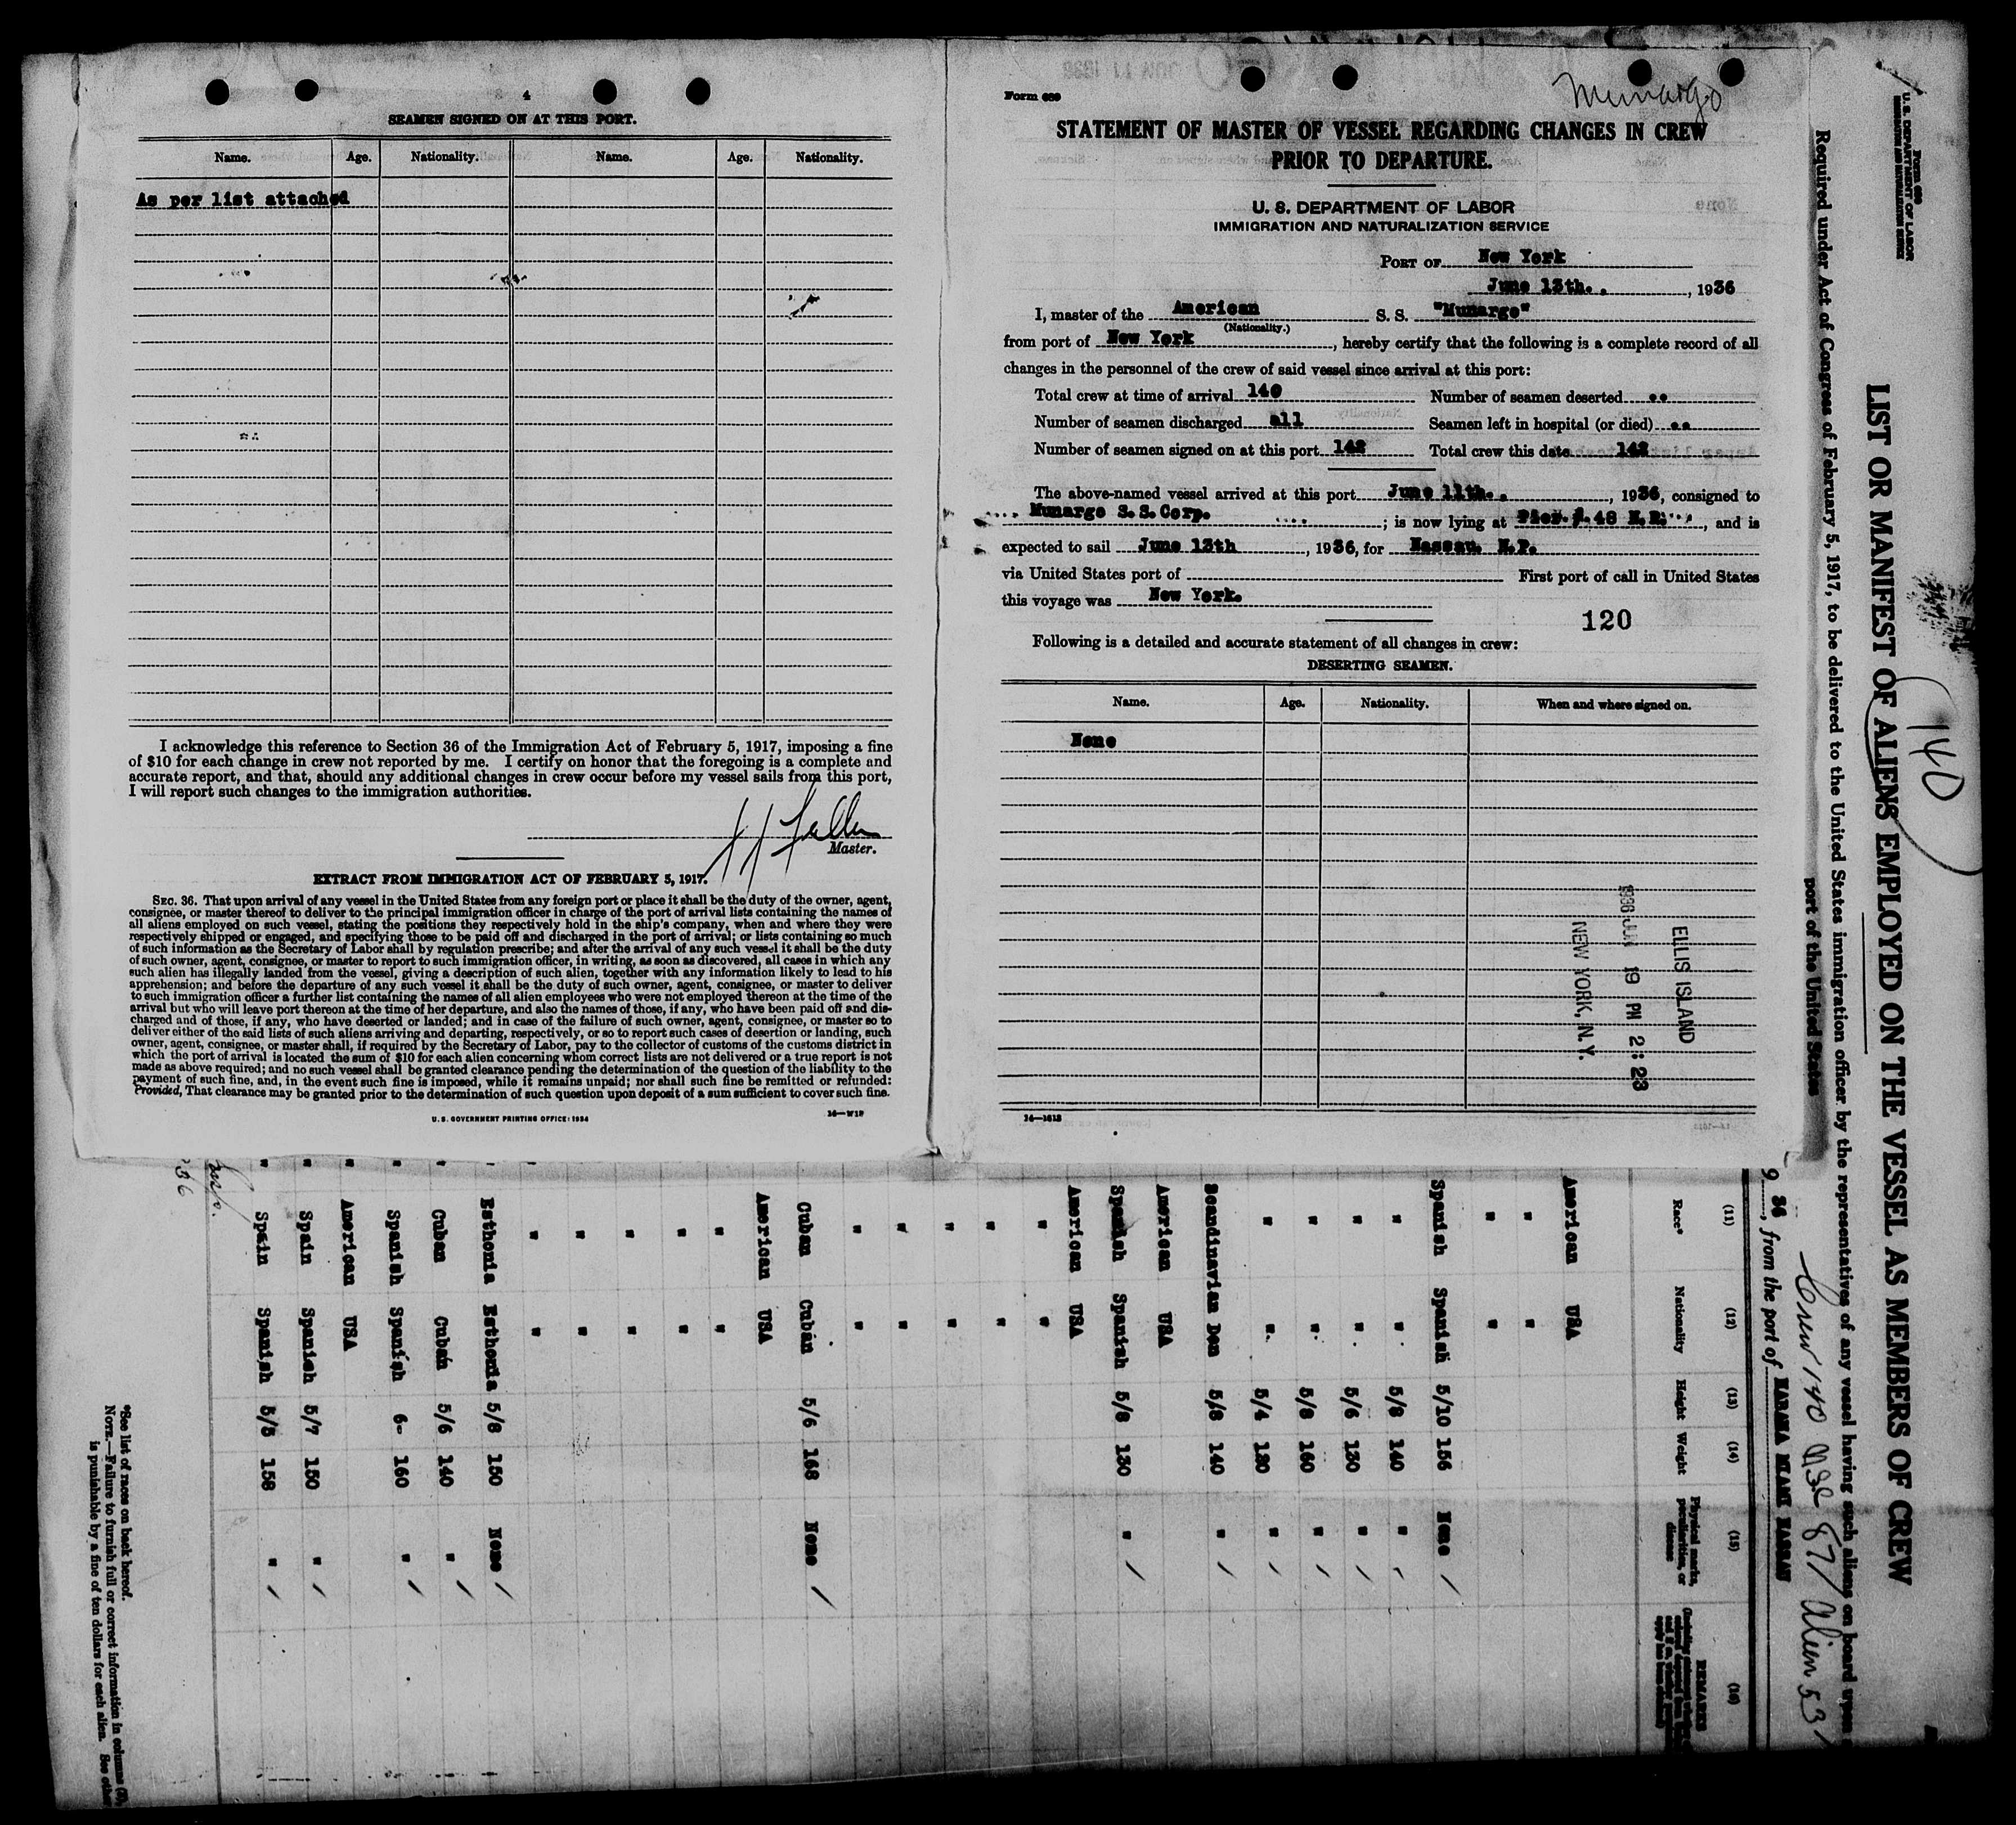 4
SEAMEN SIGNED ON AT THIS PORT.
Name. Age. Nationality. Name. Age. Nationality.
As per list attached
I acknowledge this reference to Section 36 of the Immigration Act of February 5, 1917, imposing a fine
of $10 for each change in crew not reported by me. I certify on honor that the foregoing is a complete and
accurate report, and that, should any additional changes in crew occur before my vessel sails from this port,
I will report such changes to the immigration authorities.
Master.
EXTRACT FROM IMMIGRATION ACT OF FEBRUARY 5, 1917.
SEC. 36. That upon arrival of any vessel in the United States from any foreign port or place it shall be the duty of the owner, agent,
consignee, or master thereof to deliver to the principal immigration officer in charge of the port of arrival lists containing the names of
all aliens employed on such vessel, stating the positions they respectively hold in the ship's company, when and where they were
respectively shipped or engaged, and specifying those to be paid off and discharged in the port of arrival; or lists containing so much
of such information as the Secretary of Labor shall by regulation prescribe; and after the arrival of any such vessel it shall be the duty
of such owner, agent, consignee, or master to report to such immigration officer, in writing, as soon as discovered, all cases in which any
such alien has illegally landed from the vessel, giving a description of such alien, together with any information likely to lead to his
apprehension; and before the departure of any such vessel it shall be the duty of such owner, agent, consignee, or master to deliver
to such immigration officer a further list containing the names of all alien employees who were not employed thereon at the time of the
arrival but who will leave port thereon at the time of her departure, and also the names of those, if any, who have been paid off and dis-
charged and of those, if any, who have deserted or landed; and in case of the failure of such owner, agent, consignee, or master so to
deliver either of the said lists of such aliens arriving and departing, respectively, or so to report such cases of desertion or landing, such
owner, agent, consignee, or master shall, if required by the Secretary of Labor, pay to the collector of customs of the customs district in
which the port of arrival is located the sum of $10 for each alien concerning whom correct lists are not delivered or a true report is not
made as above required; and no such vessel shall be granted clearance pending the determination of the question of the liability to the
payment of such fine, and, in the event such fine is imposed, while it remains unpaid; nor shall such fine be remitted or refunded:
Provided, That clearance may be granted prior to the determination of such question upon deposit of a sum sufficient to cover such fine.
U. S. GOVERNMENT PRINTING OFFICE: 1934
Form 689
Munargo
STATEMENT OF MASTER OF VESSEL REGARDING CHANGES IN CREW
PRIOR TO DEPARTURE.
U. S. DEPARTMENT OF LABOR
IMMIGRATION AND NATURALIZATION SERVICE
PORT OF New York
June 13th. , 1936
I, master of the American S. S. "Munargo"
(Nationality.)
from port of New York, hereby certify that the following is a complete record of all
changes in the personnel of the crew of said vessel since arrival at this port:
Total crew at time of arrival 140 Number of seamen deserted ..
Number of seamen discharged all Seamen left in hospital (or died) ..
Number of seamen signed on at this port 142 Total crew this date 142
The above-named vessel arrived at this port June 11th. , 1936, consigned to
Munargo S.S.Corp. ; is now lying at Pier 48 N.R. , and is
expected to sail June 13th , 1936, for Nassau. N.P.
via United States port of First port of call in United States
this voyage was New York.
120
Following is a detailed and accurate statement of all changes in crew:
DESERTING SEAMEN.
Name. Age. Nationality. When and where signed on.
None
ELLIS ISLAND
1936 JUN 19 PM 2:23
NEW YORK, N.Y.
14—1618
U. S. DEPARTMENT OF LABOR
LIST OR MANIFEST OF ALIENS EMPLOYED ON THE VESSEL AS MEMBERS OF CREW
140
Required under Act of Congress of February 5, 1917, to be delivered to the United States immigration officer by the representatives of any vessel having such aliens on board upon
port of the United States
Crew 140 USC 87 / Alien 53
9 36, from the port of HABANA MIAMI NASSAU
(11) (12) (13) (14) (15) (16)
Race* Nationality Height Weight Physical marks, peculiarities, or disease REMARKS
American USA
" "
" "
Spanish Spanish 5/10 156 None
" " 5/8 140 "
" " 5/6 130 "
" " 5/8 160 "
" " 5/4 120 "
Scandinavian Den 5/8 140 "
American USA
Spanish Spanish 5/8 130 "
American USA
" "
" "
" "
" "
" "
Cuban Cuban 5/6 168 None
American USA
" "
" "
" "
" "
" "
Esthonia Esthonia 5/8 150 None
Cuban Cuban 5/6 140 "
Spanish Spanish 6- 160 "
American USA
Spain Spanish 5/7 150 "
Spain Spanish 5/5 158 "
*See list of races on back hereof.
NOTE.—Failure to furnish full or correct information in columns (3),
is punishable by a fine of ten dollars for each alien. See other